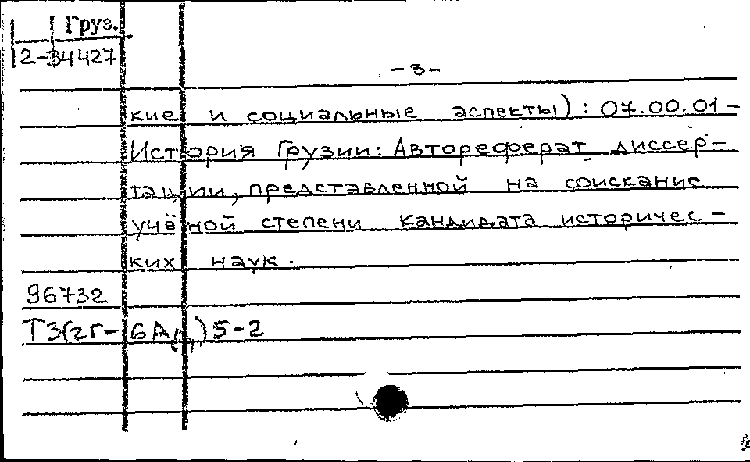 Груз.
2-34427
-3-
кие и социальные аспекты): 07.00.01-
История Грузии: Автореферат диссер-
тации, представленной на соискание
учёной степени кандидата историчес-
ких наук.
96732